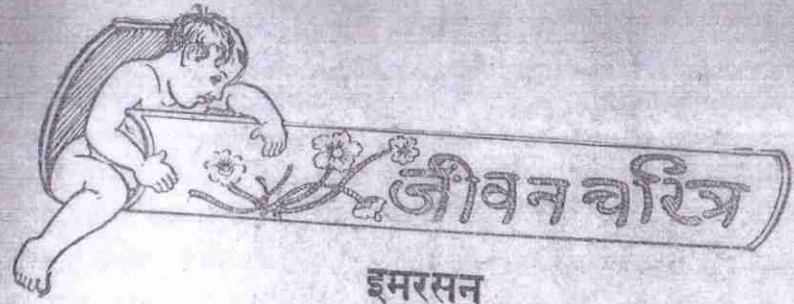 जीवन चरित्र
इमरसन